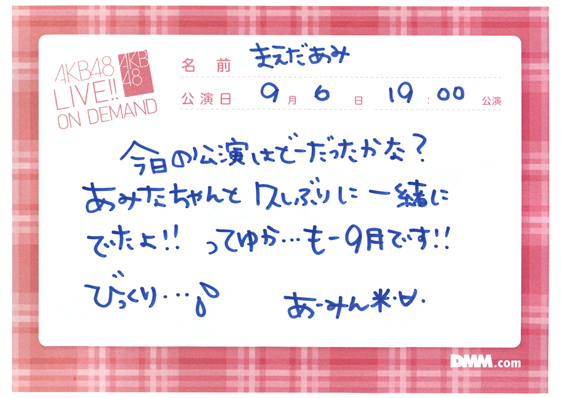 AKB48
LIVE!!
ON DEMAND
AKB
48
名前 まえだあみ
公演日 9月6日 19:00公演
今日の公演はどーだったかな?
あみたちゃんと久しぶりに一緒に
でたよ!! ってゆか…もー9月です!!
びっくり…
あーみん
DMM.com